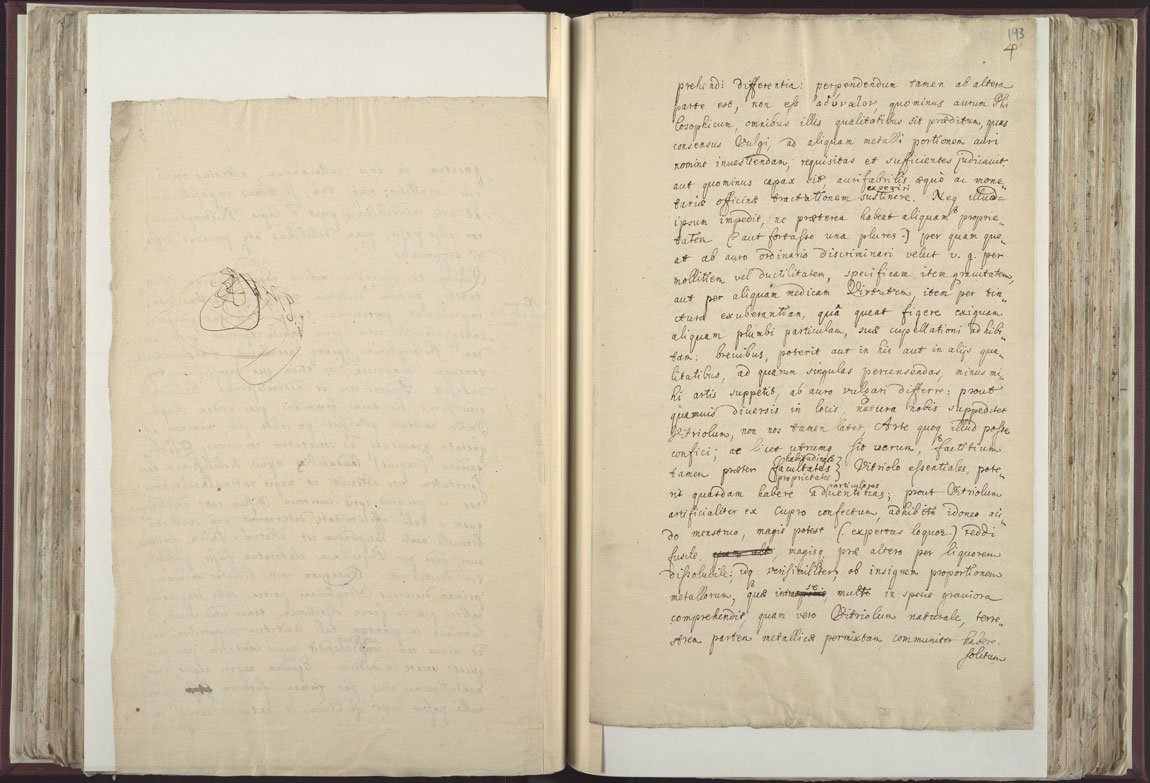 193
4
prehendi differentia: perpendendum tamen ab altera
parte est, non esse quominus aurum Phi
losophicum, omnibus illis qualitatibus sit præditum, quas
consensus Vulgi, ad aliquam metalli portionem auri
nomine inuestiendam, requisitas et sufficientes judicauit
aut quominus capax sit aurifabrilis æque ac mone„
experiri
tariæ officinæ tractationem sustinere. Neq illud=
ipsum impedit, ne præterea habeat aliquam proprie„
tatem (: aut fortasse una plures :) per quam que„
at ab auro ordinario discriminari velut v. g. per
mollitiem vel ductilitatem, specificam item gravitatem,
aut per aliquam medicam Virtutem, item per tin„
cturæ exuberantiam, quâ queat figere exiguam
aliquam plumbi particulam, suæ cupellationi adhibi„
tam: brevibus, poterit aut in his aut in alijs qua„
litatibus, ad quarum singulas percensendas, minus mi„
hi artis suppetit, ab auro vulgari differre: prout
quamuis diversis in locis, natura nobis suppeditet
Vitriolum, non nos tamen latet, Arte quoq illud posse
confici; ac licet utrumq sit verum, factitium
habitudines
tamen præter facultates Vitriolo essentiales, pote„
proprietates
particulares
rit quasdam habere adventitias; prout Vitriolum
artificialiter ex Cupro confectum, adhibito idoneo aci„
do menstruo, magis potest (: expertus loquor :) reddi
fusile, magisq præ altero per liquorem
dissolubile; idq verisimiliter, ob insignem proportionem
metallorum, quæ in se, multo in specie graviora
comprehendit, quam vero Vitriolum naturale, terre„
strem partem metallicæ permixtam communiter habere.
solitum